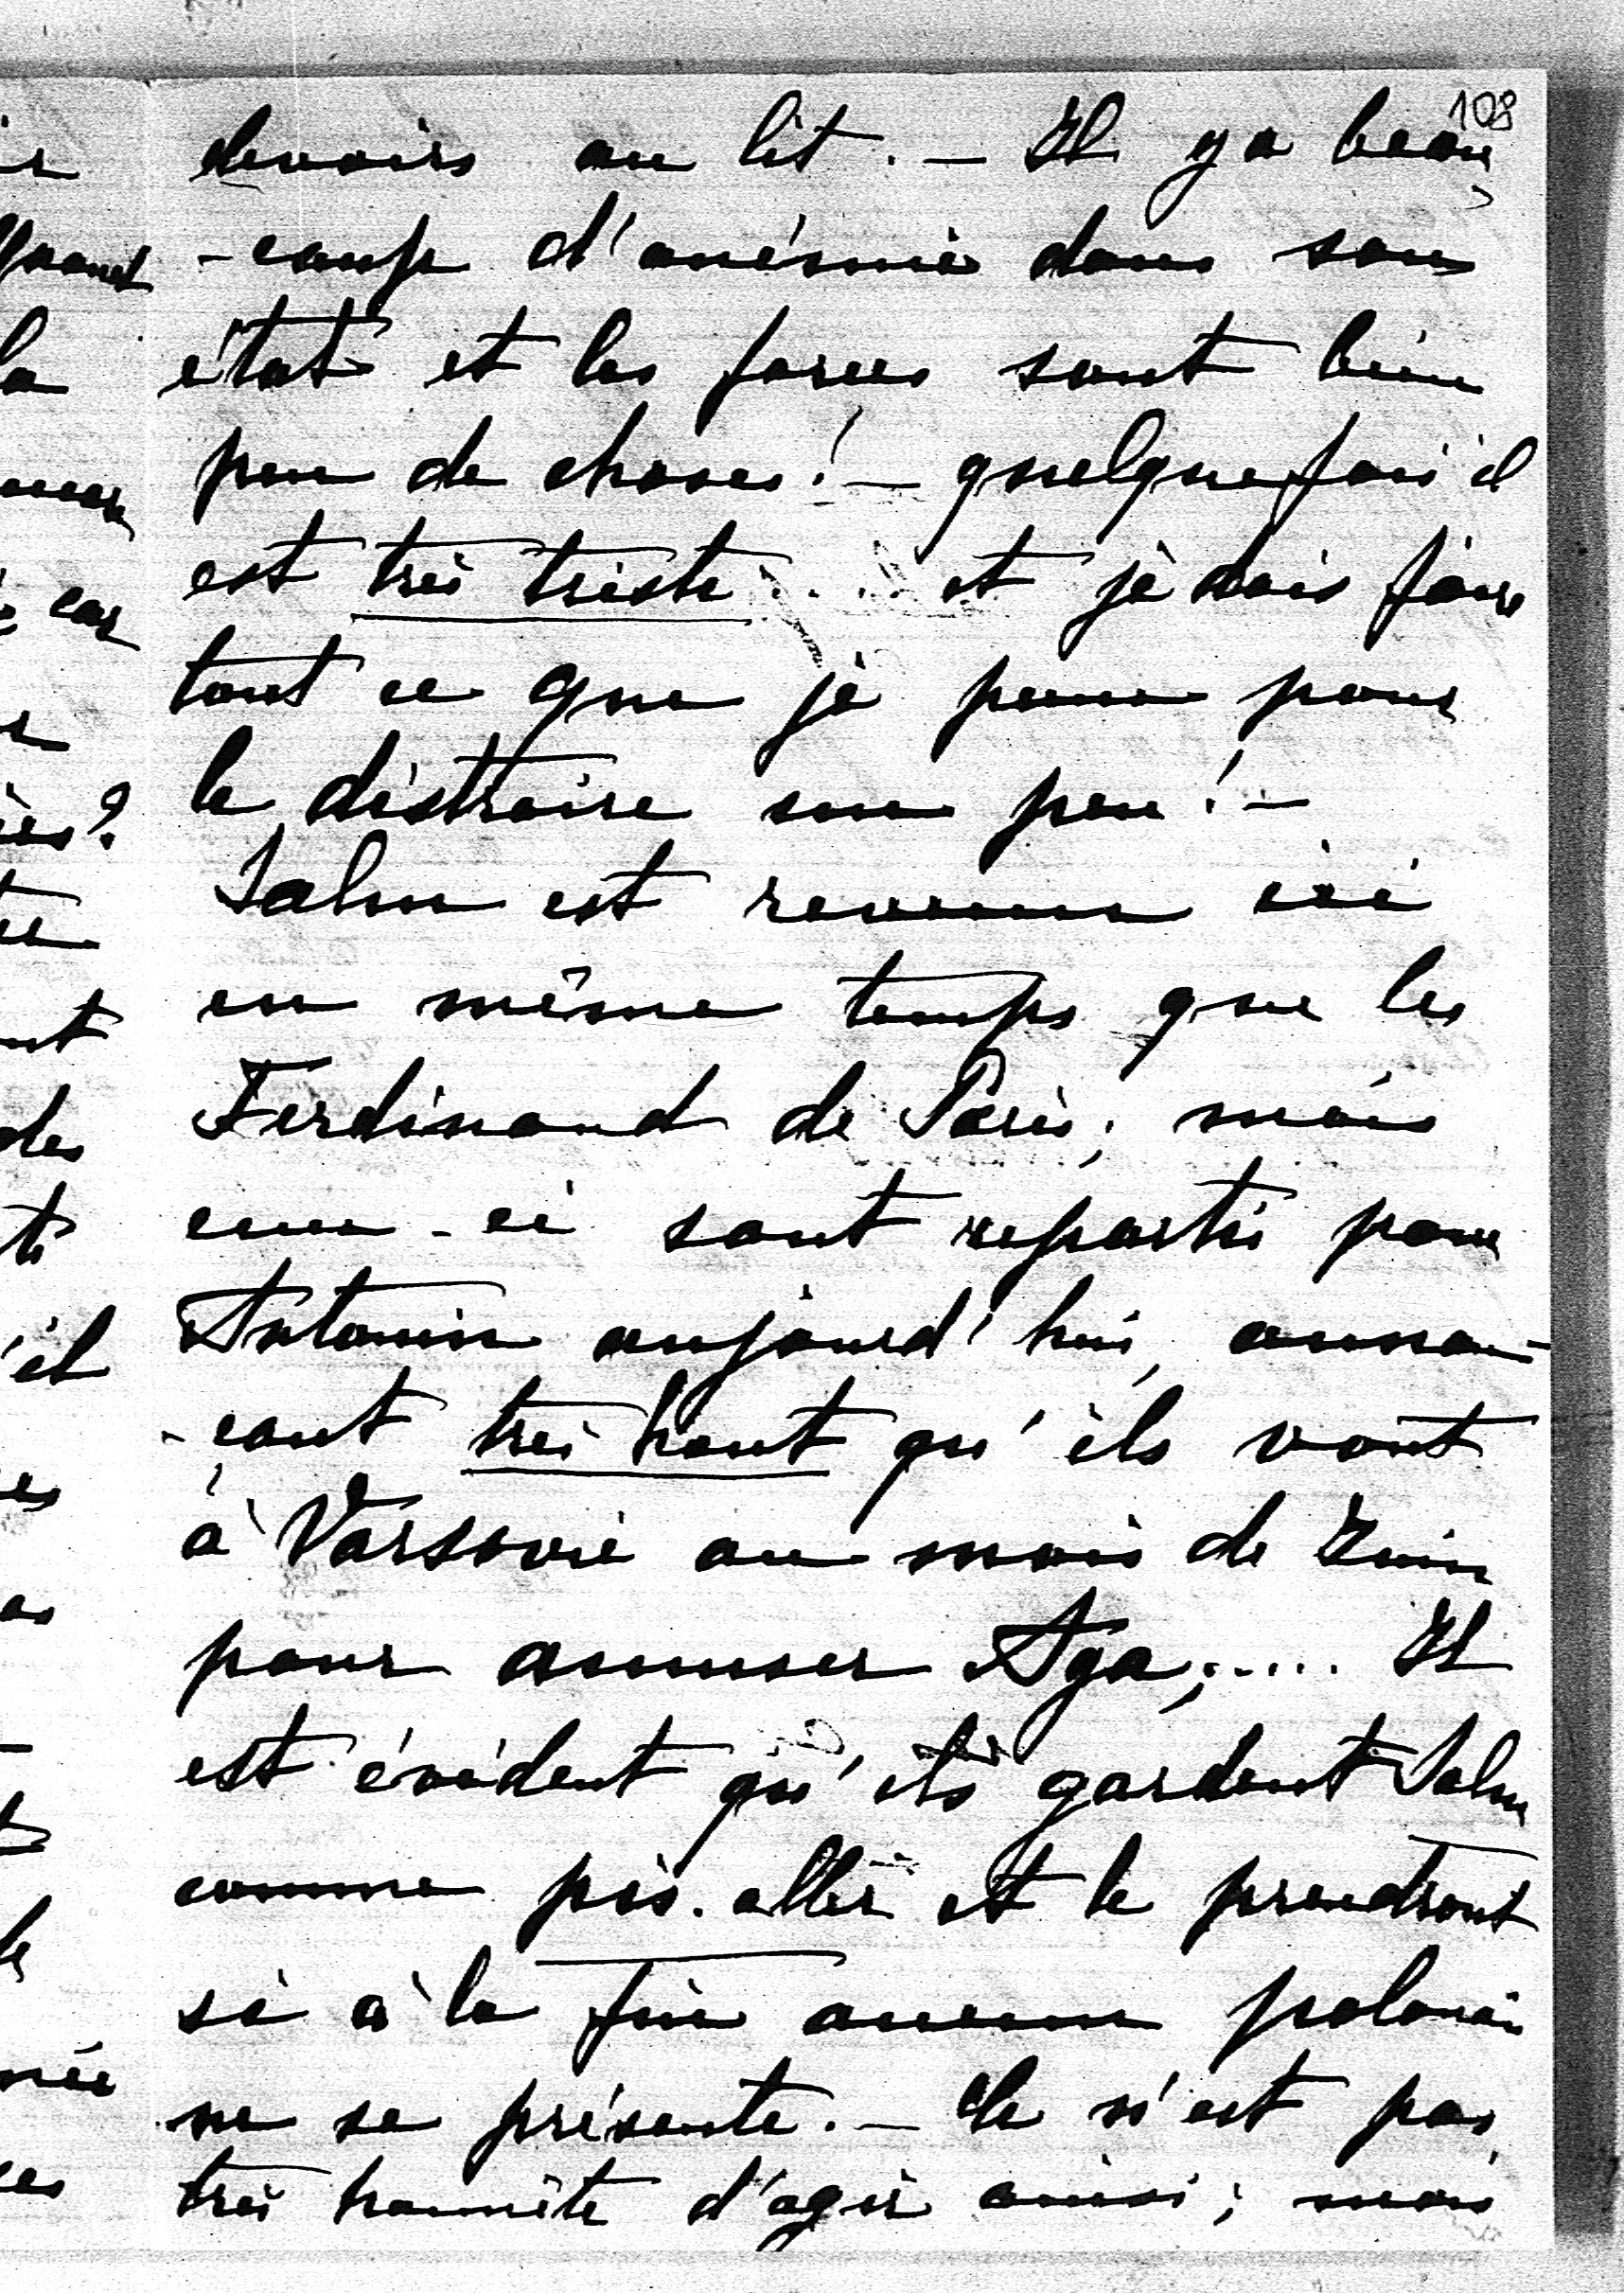 108
devoirs au lit. — Il y a beau
-coup d'anémie dans son
état et les forces sont bien
peu de choses! — quelquefois il
est très triste..... et je dois faire
tout ce que je peux pour
le distraire un peu! —
Salm est revenu ici
en même temps que les
Ferdinand de Paris; mais
ceux-ci sont repartis pour
Antonin aujourd'hui, annon-
-çant très haut qu'ils vont
à Varsovie au mois de Juin
pour amuser Aga;..... Il
est évident qu'ils gardent Salm
comme pis-aller et le prendront
si à la fin aucun polonais
ne se présente. — Ce n'est pas
très honnête d'agir ainsi; mais